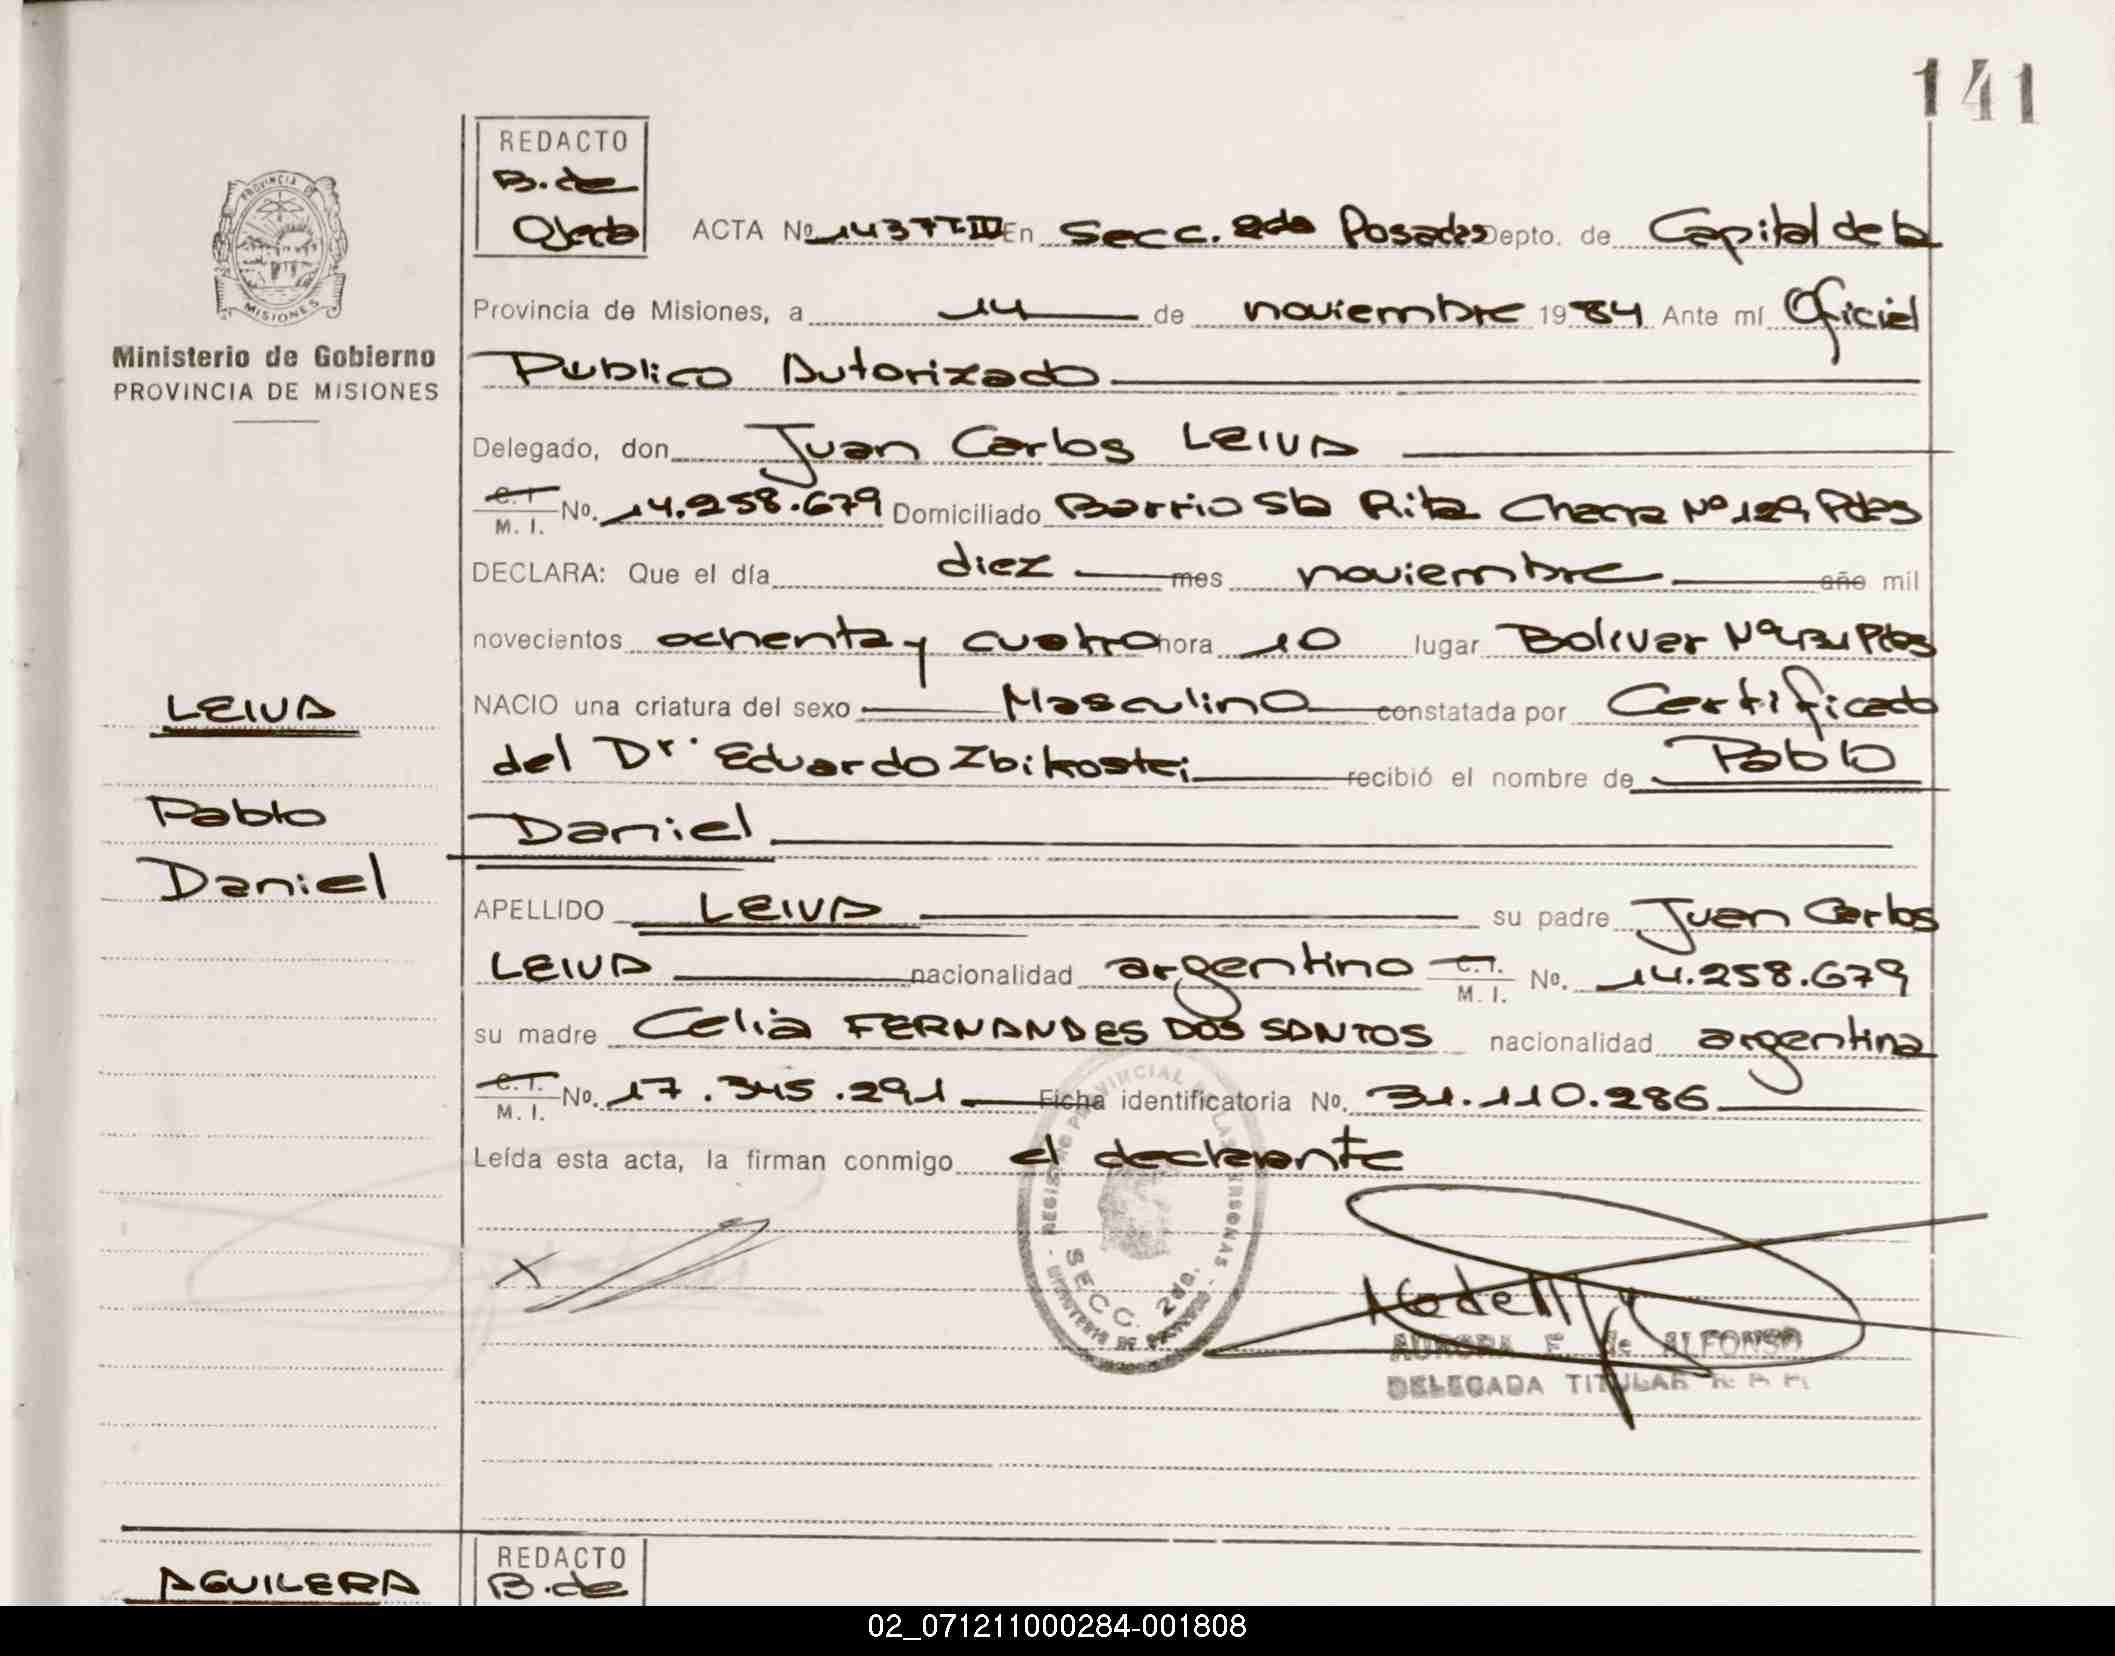 141
REDACTO
B. de
Ojeda
PROVINCIA DE
MISIONES
Ministerio de Gobierno
PROVINCIA DE MISIONES
ACTA No 1437T-IV En Secc. 2da Posadas Depto. de Capital de la
Provincia de Misiones, a 14 de noviembre 1984 Ante mí Oficial
Publico Autorizado
Delegado, don Juan Carlos LEIVA
C.I. M. I. No. 14.258.679 Domiciliado Barrio Sta Rita Chacra Nº 129, Pdas
DECLARA: Que el día diez mes noviembre año mil
novecientos ochenta y cuatro hora 10 lugar Bolivar Nº Pdas
NACIO una criatura del sexo Masculino constatada por Certificado
del Dr. Eduardo Zbikoski recibió el nombre de Pablo
Daniel
APELLIDO LEIVA su padre Juan Carlos
LEIVA nacionalidad argentino C.I. M. I. No. 14.258.679
su madre Celia FERNANDES DOS SANTOS nacionalidad argentina
C.I. M. I. No. 17.345.291 Ficha identificatoria No. 31.110.286
Leída esta acta, la firman conmigo el declarante
LEIVA
Pablo
Daniel
REGISTRO PROVINCIAL DE LAS PERSONAS
SECC. 2da.
MINISTERIO DE GOBIERNO
AURORA F. de ALFONSO
DELEGADA TITULAR
AGUILERA
REDACTO
B. de
02_071211000284-001808